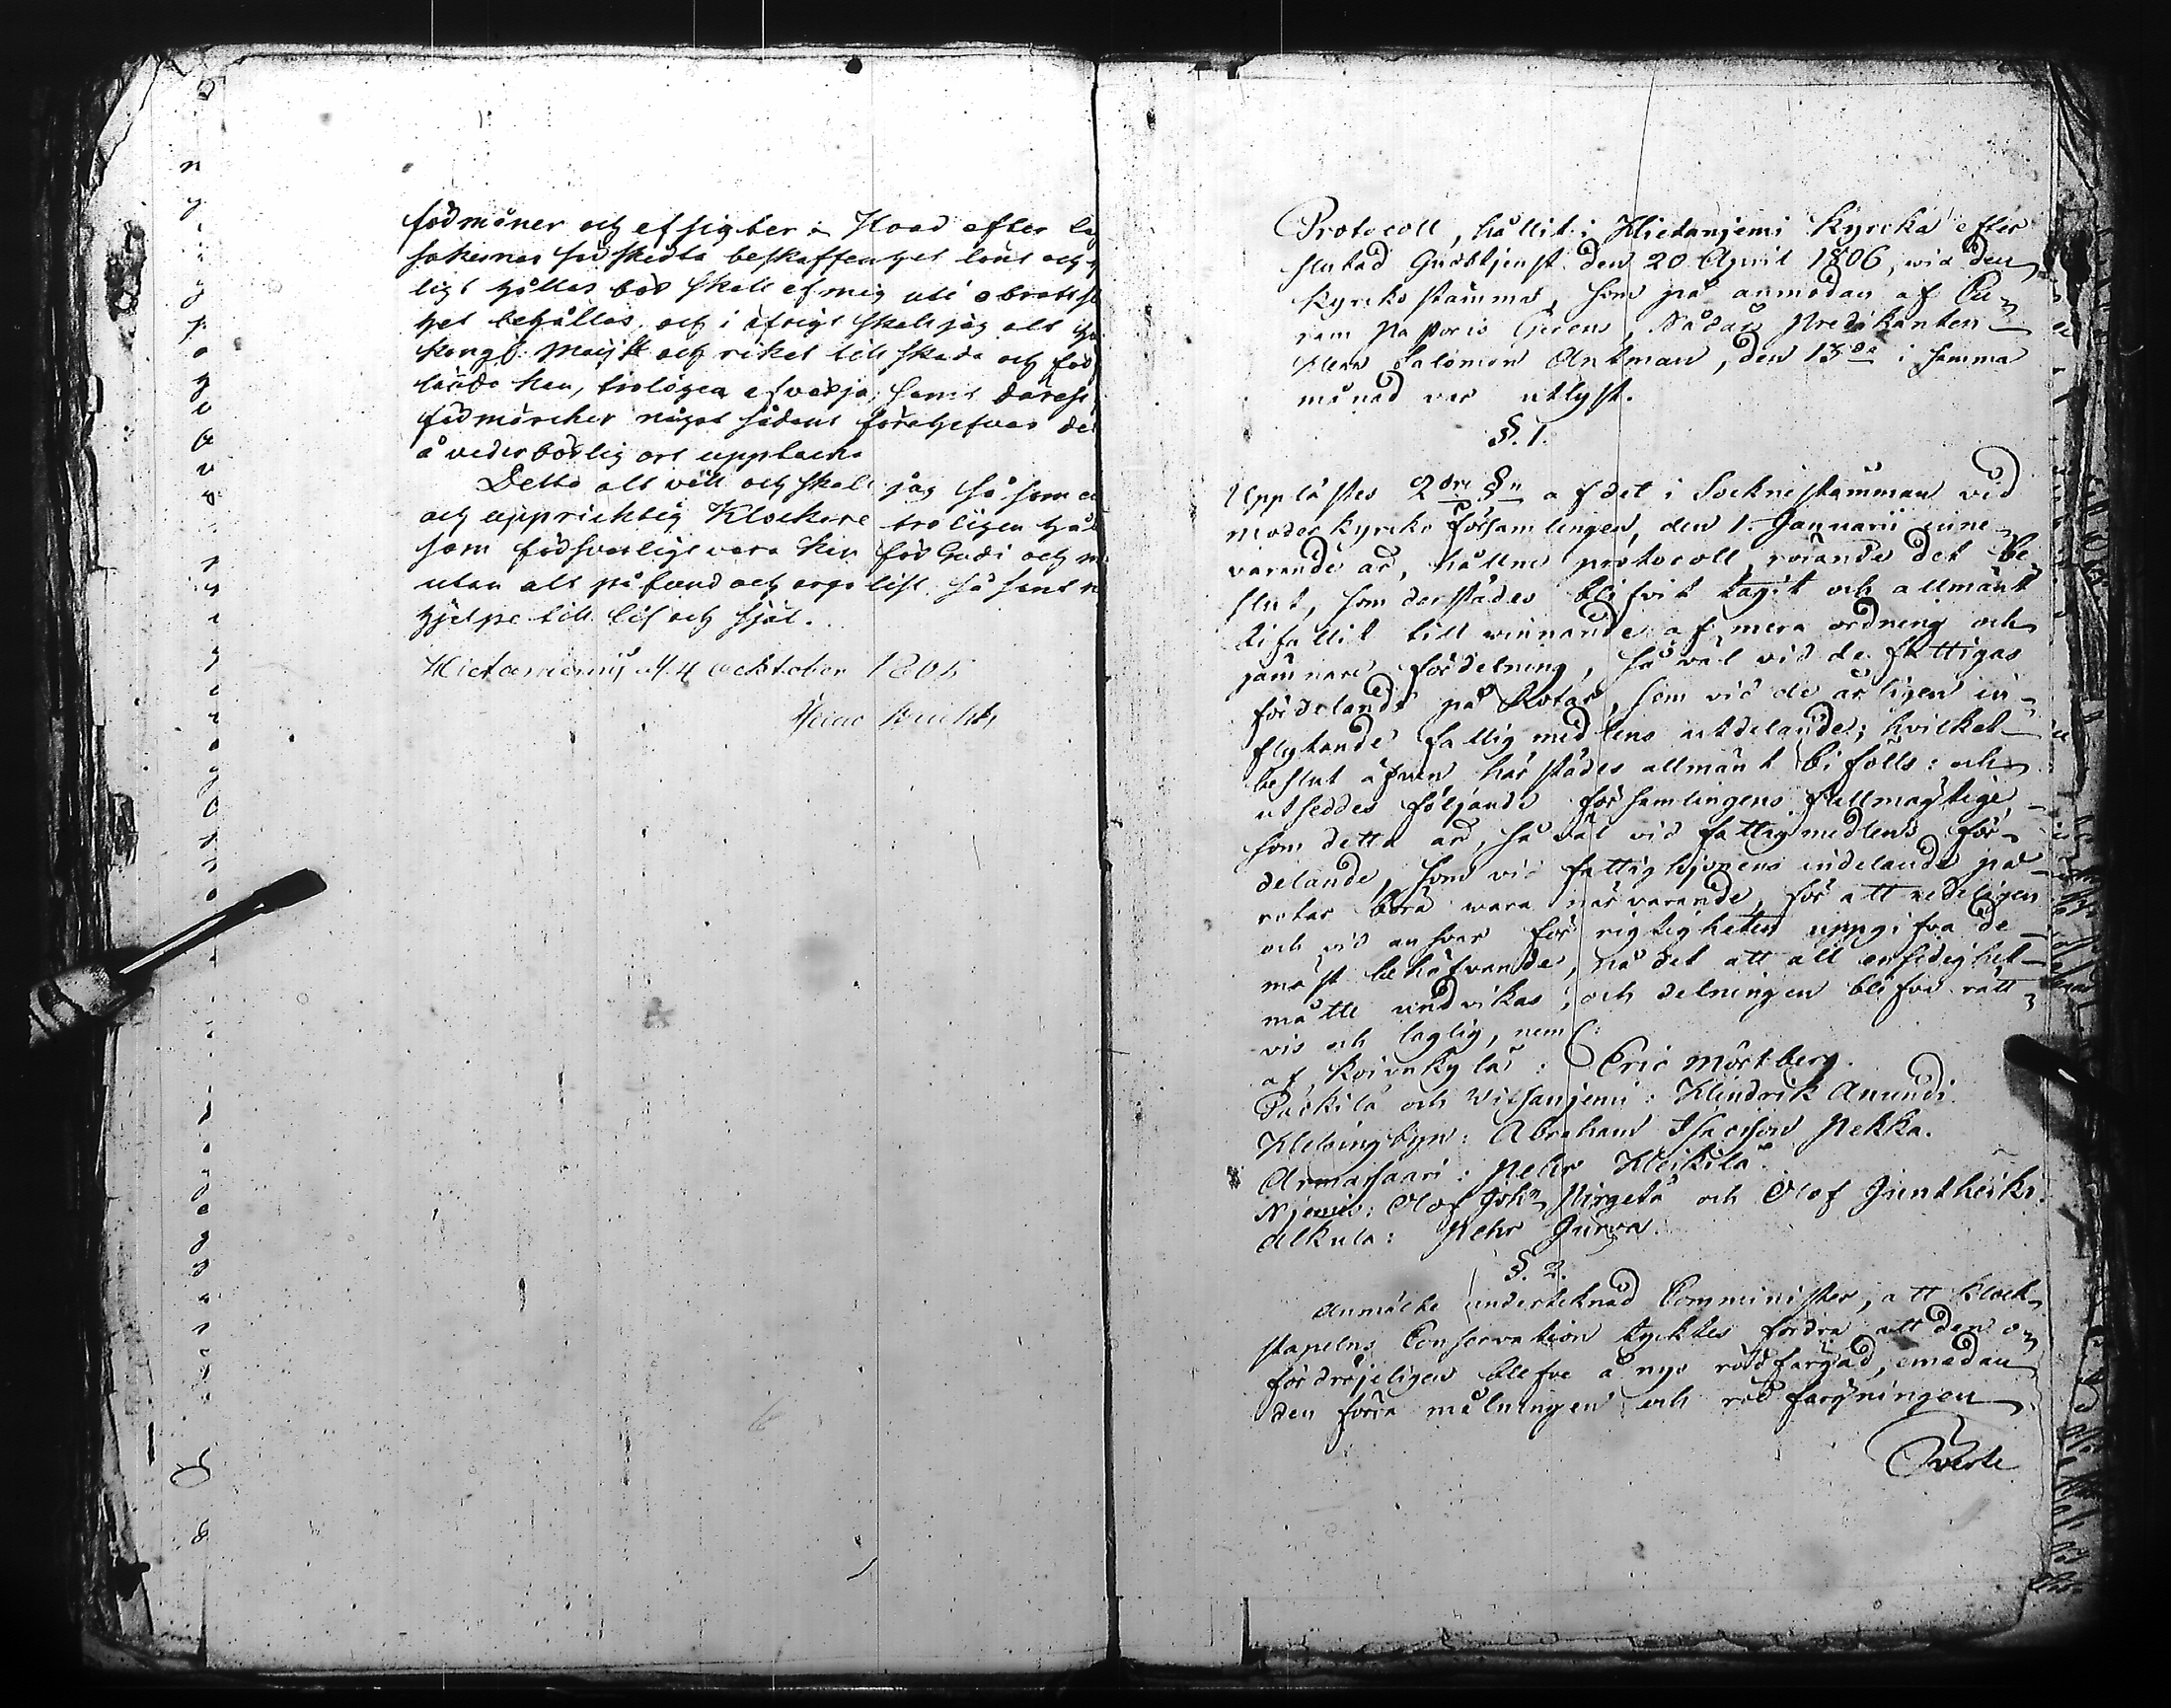 förmåner och afsigter. Hvad efter
sakernas särskildta beskaffenhet lönt och
ligt hållas bör skall af mig uti obrottsl
het behållas, och i öfrigt skall jag alt
Kongl. Maij:tt och riket till skada och för
lända kan, troligen afvärja, samt däräst
förmärcker något sådant förehafvas det
å vederbörlig ort upptäcka
Detta alt vill och skall jag så som en
och upprichtig Klockare troligen hål
som försvarligt vara kan för Gudi och m
utan alt på fund och arga list. Så sant
hjelpe till lif och själ.
Hietaniemi d. 4 october 180
Protocoll, hållit i Hietaniemi Kyrcka efter
slutad Gudstjenst den 20 April 1806, vid den
Kyrkostämma, som på anmodan af Cu-
ram Pastoris Gerens, Nådårs Predikanten
Herr Salomon Antman, den 13de i samma
månad var utlyst.
§. 1.
Upplästes 2dre §n af det i Sockne stämman vid
moderkyrko församlingen, den 1. Januarii inne-
varande år, hållne protocoll, rörande det be-
slut, som derstädes blifvit tagit och allmänt
bifallit till vinnande af mera ordning och
jämnare fördelning, så väl vid de fattigas
fördelande på Rotar, som vid de årligen in-
flytande fattig medlens utdelande; hvilket
beslut äfven härstädes allmänt bifölls: och
utseddes följande församlingens fullmägtige
som detta år, så väl vid fattigmedlens för-
delande, som vid fattighjonens indelande på
rotar böra wara närvarande, för att redeligen
och vid ansvar för rigtigheten uppgifva de
mäst behöfvande, på det att all ensidighet
måtte undvikas; och delningen blifva rätt-
vis och laglig, neml:
af Koivukylä: Eric Mörtberg.
Päckilä och Vitsaniemi: Hindrik Anundi.
Helsingbyn: Abraham Isacsson Pekka.
Armassaari: Pehr Heikilä.
Niemis: Olof Johs Pirgetå och Olof Juntheiki.
Alkula: Pehr Jurva.
§. 2.
Anmälte undertecknad Comminister, att klock-
stapelns Conservation tycktes fordra att den o-
fördröjeligen blefve å nyo rödfärgad, emedan
den förra målningen och rödfärgningen